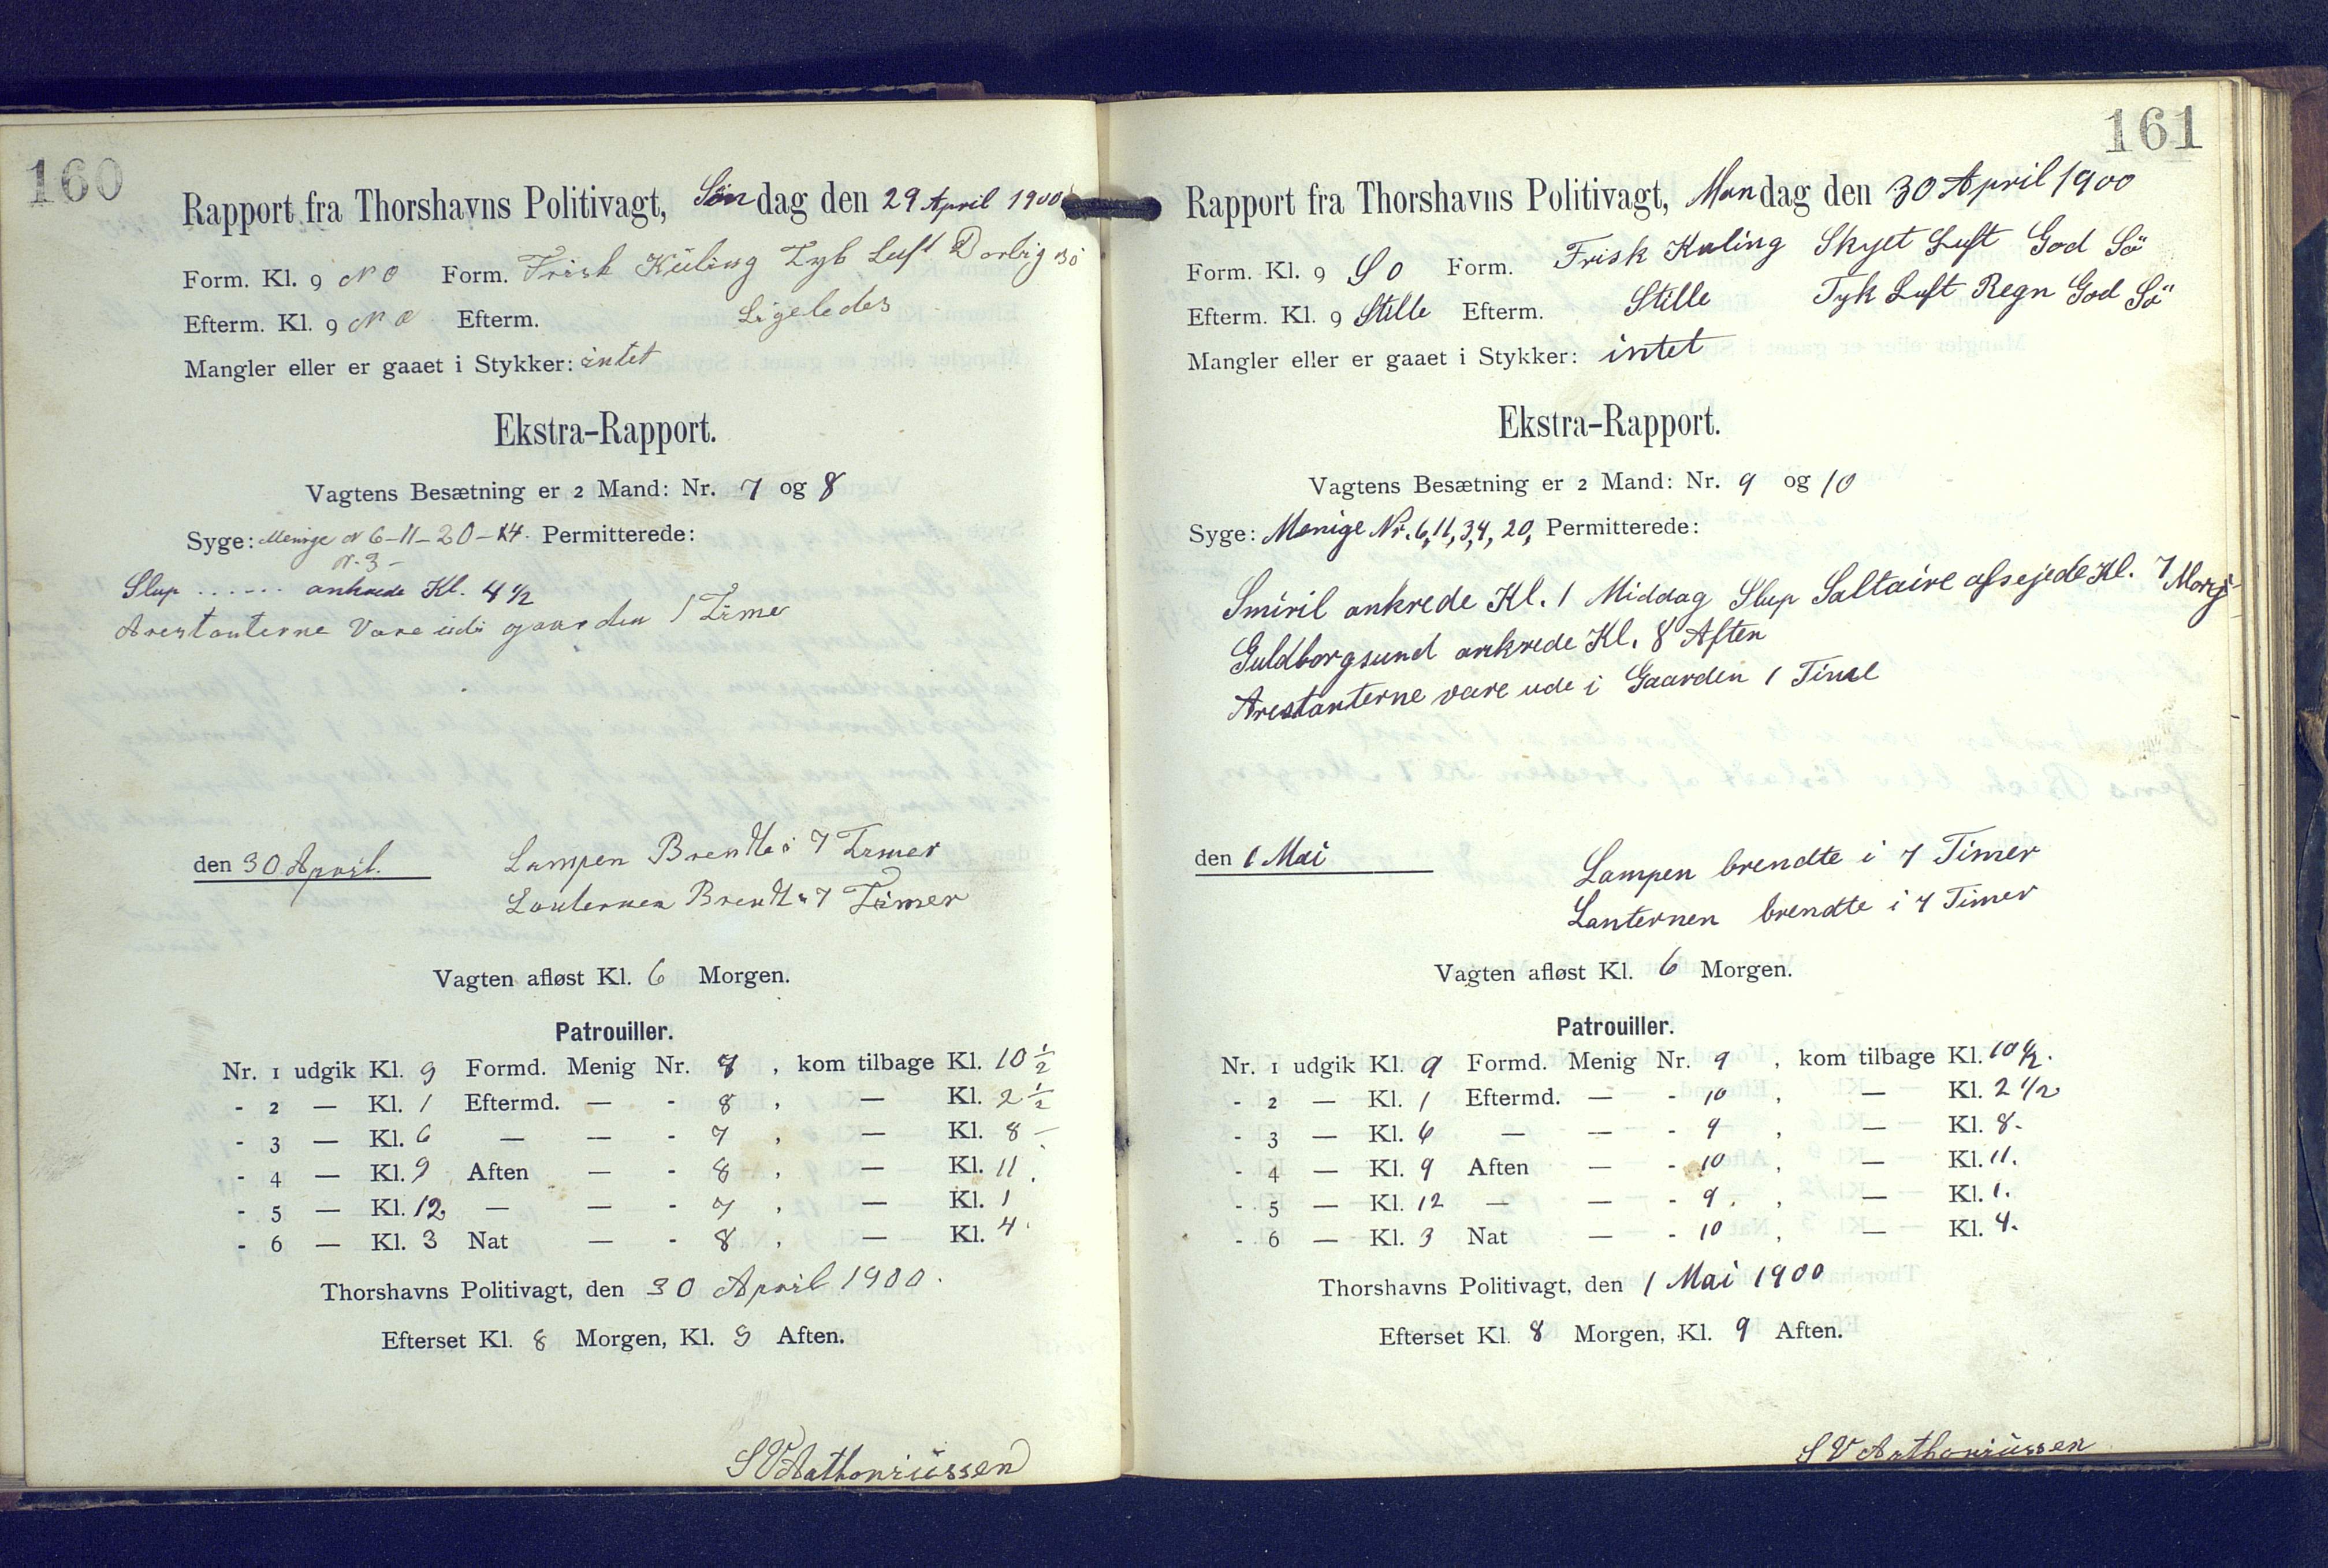 160
Rapport fra Thorshavns Politivagt, Søndag den 29 April 1900
Form. Kl. 9 N O Form. Frisk Kuling Tyk Luft Dorlig sö
Efterm. Kl. 9 N O Efterm. Ligeledes
Mangler eller er gaaet i Stykker: intet
Ekstra-Rapport.
Vagtens Besætning er 2 Mand: Nr. 7 og 8
Syge: Menige N 6-11-20-14. Permitterede:
N. 3 -
Slup ...... ankrede Kl. 4 1/2
Arestanterne Vare udi gaarden 1 Time
den 30 April.
Lampen Brendte i 7 Timer
Lanternen Brendte 7 Timer
Vagten afløst Kl. 6 Morgen.
Patrouiller.
Nr. 1 udgik Kl. 9 Formd. Menig Nr. 7, kom tilbage Kl. 10 1/2
- 2 — Kl. 1 Eftermd. — - 8, — Kl. 2 1/2
- 3 — Kl. 6 — — - 7, — Kl. 8 -
- 4 — Kl. 9 Aften — - 8, — Kl. 11.
- 5 — Kl. 12 — — - 7, — Kl. 1
- 6 — Kl. 3 Nat — - 8, — Kl. 4.
Thorshavns Politivagt, den 30 April 1900.
Efterset Kl. 8 Morgen, Kl. 9 Aften.
S V Anthoniussen
161
Rapport fra Thorshavns Politivagt, Mandag den 30 April 1900
Form. Kl. 9 S O Form. Frisk Kuling Skyet Luft God Sö
Efterm. Kl. 9 Stille Efterm. Stille Tyk Luft Regn God Sö
Mangler eller er gaaet i Stykker: intet
Ekstra-Rapport.
Vagtens Besætning er 2 Mand: Nr. 9 og 10
Syge: Menige Nr. 6, 11, 3, 4, 20, Permitterede:
Smiril ankrede Kl. 1 Middag Slup Saltaire afsejede Kl. 7 Morg
Guldborgsund ankrede Kl. 8 Aften
Arestanterne vare ude i Gaarden 1 Time
den 1 Mai
Lampen brendte i 7 Timer
Lanternen brendte i 7 Timer
Vagten afløst Kl. 6 Morgen.
Patrouiller.
Nr. 1 udgik Kl. 9 Formd. Menig Nr. 9, kom tilbage Kl. 10 1/2.
- 2 — Kl. 1 Eftermd. — - 10, — Kl. 2 1/2
- 3 — Kl. 6 — — - 9, — Kl. 8.
- 4 — Kl. 9 Aften — - 10, — Kl. 11.
- 5 — Kl. 12 — — - 9, — Kl. 1.
- 6 — Kl. 3 Nat — - 10, — Kl. 4.
Thorshavns Politivagt, den 1 Mai 1900
Efterset Kl. 8 Morgen, Kl. 9 Aften.
S V Anthoniussen